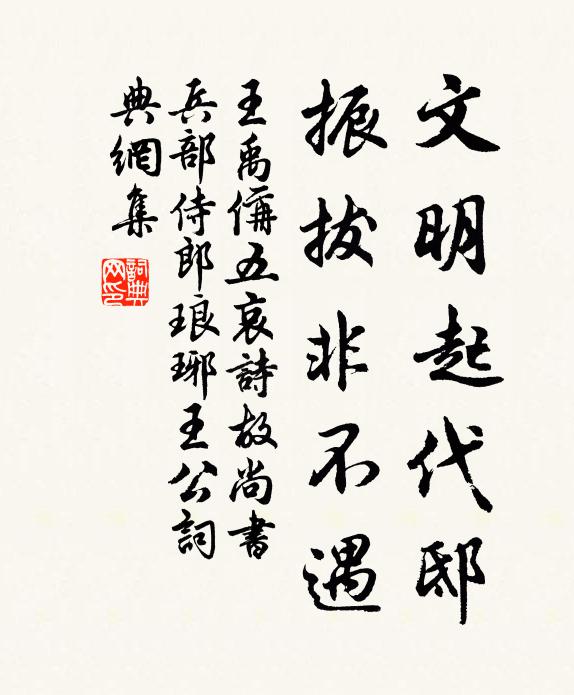 文明起代邸
振拔非不遇
王禹偁五哀詩故尚書
兵部侍郎琅琊王公詞
典網集
詞典网印